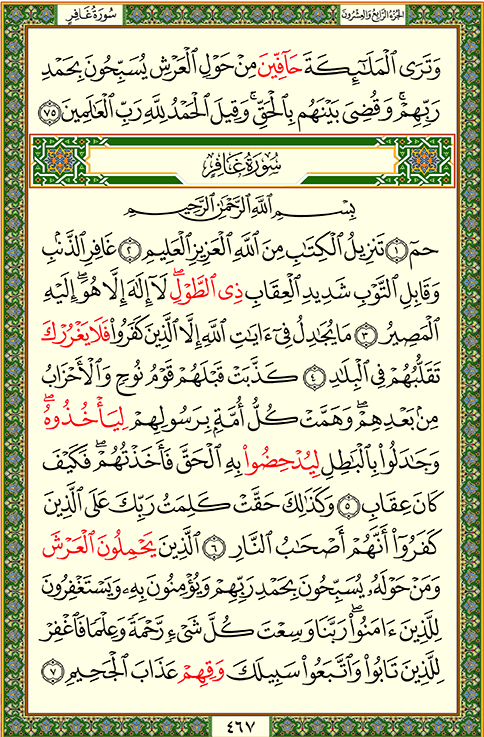 سُورَةُ غَافِرٍ
الجُزْءُ الرَّابِعُ وَالعِشْرُونَ
وَتَرَى ٱلْمَلَٰٓئِكَةَ حَآفِّينَ مِنْ حَوْلِ ٱلْعَرْشِ يُسَبِّحُونَ بِحَمْدِ
رَبِّهِمْ ۖ وَقُضِىَ بَيْنَهُم بِٱلْحَقِّ ۚ وَقِيلَ ٱلْحَمْدُ لِلَّهِ رَبِّ ٱلْعَٰلَمِينَ ٧٥
سُورَةُ غَافِرٍ
بِسْمِ ٱللَّهِ ٱلرَّحْمَٰنِ ٱلرَّحِيمِ
حمٓ ١ تَنزِيلُ ٱلْكِتَٰبِ مِنَ ٱللَّهِ ٱلْعَزِيزِ ٱلْعَلِيمِ ٢ غَافِرِ ٱلذَّنۢبِ
وَقَابِلِ ٱلتَّوْبِ شَدِيدِ ٱلْعِقَابِ ذِى ٱلطَّوْلِ ۖ لَآ إِلَٰهَ إِلَّا هُوَ ۖ إِلَيْهِ
ٱلْمَصِيرُ ٣ مَا يُجَٰدِلُ فِىٓ ءَايَٰتِ ٱللَّهِ إِلَّا ٱلَّذِينَ كَفَرُوا۟ فَلَا يَغْرُرْكَ
تَقَلُّبُهُمْ فِى ٱلْبِلَٰدِ ٤ كَذَّبَتْ قَبْلَهُمْ قَوْمُ نُوحٍ وَٱلْأَحْزَابُ
مِنۢ بَعْدِهِمْ ۖ وَهَمَّتْ كُلُّ أُمَّةٍۭ بِرَسُولِهِمْ لِيَأْخُذُوهُ ۖ
وَجَٰدَلُوا۟ بِٱلْبَٰطِلِ لِيُدْحِضُوا۟ بِهِ ٱلْحَقَّ فَأَخَذْتُهُمْ ۖ فَكَيْفَ
كَانَ عِقَابِ ٥ وَكَذَٰلِكَ حَقَّتْ كَلِمَتُ رَبِّكَ عَلَى ٱلَّذِينَ
كَفَرُوٓا۟ أَنَّهُمْ أَصْحَٰبُ ٱلنَّارِ ٦ ٱلَّذِينَ يَحْمِلُونَ ٱلْعَرْشَ
وَمَنْ حَوْلَهُۥ يُسَبِّحُونَ بِحَمْدِ رَبِّهِمْ وَيُؤْمِنُونَ بِهِۦ وَيَسْتَغْفِرُونَ
لِلَّذِينَ ءَامَنُوا۟ ۖ رَبَّنَا وَسِعْتَ كُلَّ شَىْءٍ رَّحْمَةً وَعِلْمًا فَٱغْفِرْ
لِلَّذِينَ تَابُوا۟ وَٱتَّبَعُوا۟ سَبِيلَكَ وَقِهِمْ عَذَابَ ٱلْجَحِيمِ ٧
٤٦٧